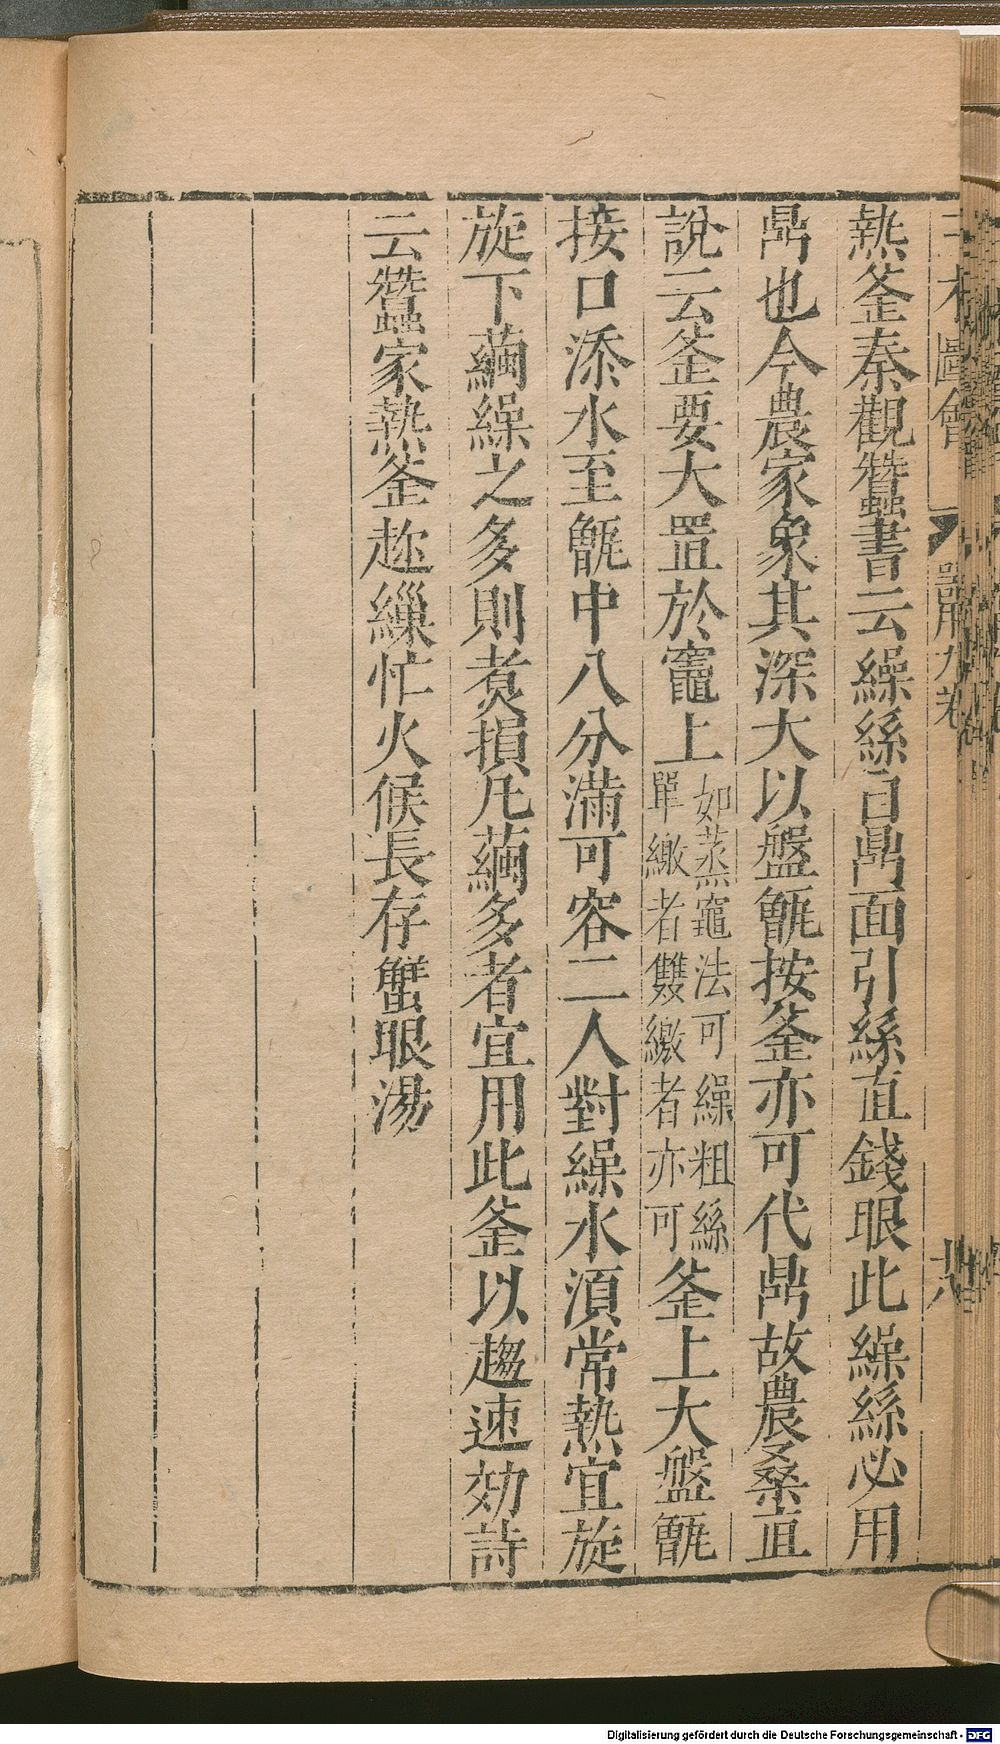 三才圖會
器用九卷
熱釜秦觀蠶書云繰絲自鼎面引絲直錢眼此繰絲必用
鼎也今農家象其深大以盤甑按釜亦可代鼎故農桑直
說云釜要大置於竈上如蒸竈法可繰粗絲單繳者雙繳者亦可釜上大盤甑
接口添水至甑中八分滿可容二人對繰水須常熱宜旋
旋下繭繰之多則煑損凡繭多者宜用此釜以趨速効詩
云蠶家熱釜趂繅忙火候長存蟹眼湯
Digitalisierung gefördert durch die Deutsche Forschungsgemeinschaft - DFG